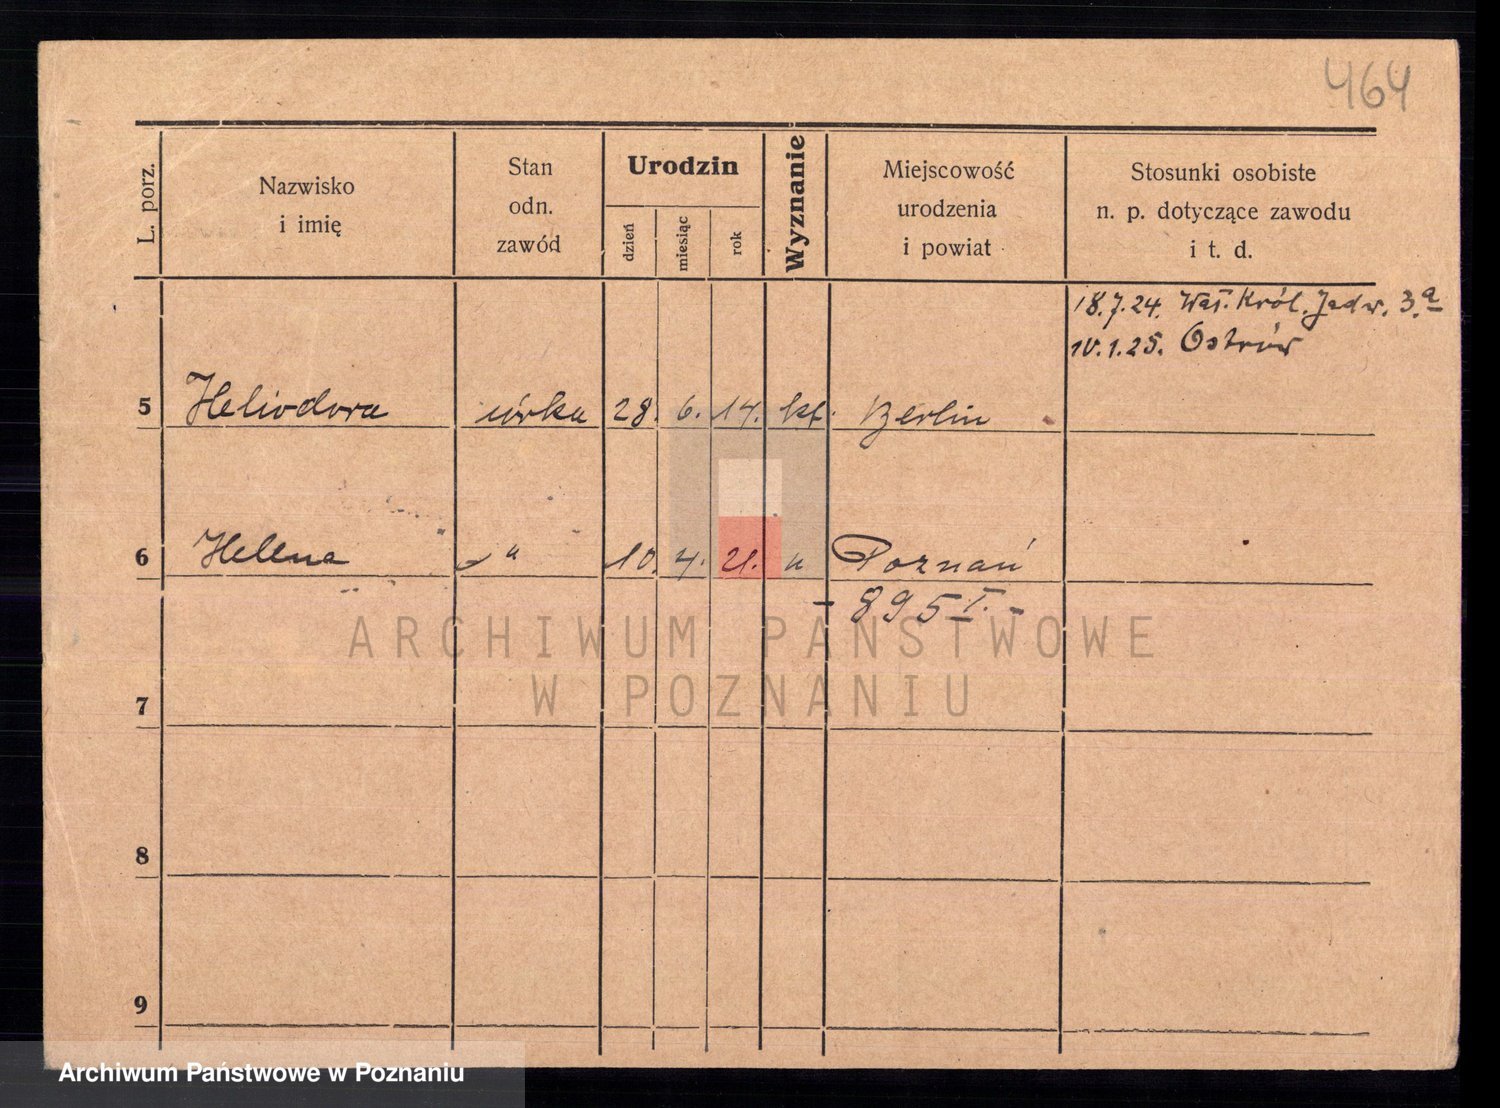 464
L. porz.
Nazwisko
i imię
Stan
odn.
zawód
Urodzin
dzień
miesiąc
rok
Wyznanie
Miejscowość
urodzenia
i powiat
Stosunki osobiste
n. p. dotyczące zawodu
i t. d.
18.7.24. Wał. Król. Jadw. 3.a
10.1.25. Ostrów
5 Heliodora córka 28. 6. 14. kt. Berlin
6 Helena " 10. 4. 21. " Poznań
- 895 I. -
ARCHIWUM PAŃSTWOWE
W POZNANIU
7
8
9
Archiwum Państwowe w Poznaniu